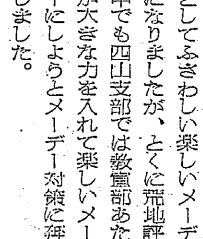 としてふさわしい楽しいメーデ
になりましたが、とくに荒地評
中でも四山支部では教宣部あた
が大きな力を入れて楽しいメー
ーにしようとメーデー対策に奔
しました。